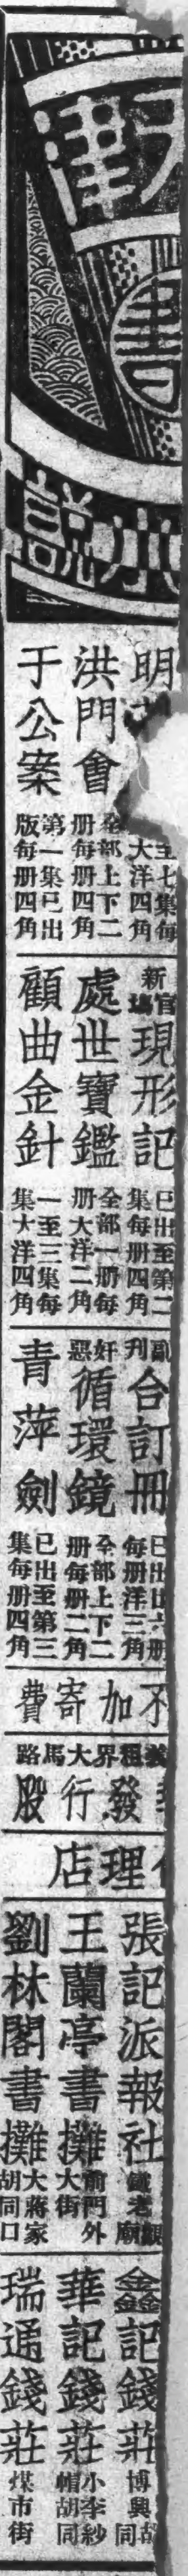 天津
書
小説
明
至七集每
大洋四角
洪門會
全部上下二
册每册四角
于公案
第一集已出
版每册四角
新官
現形記
已出至第二
集每册四角
處世寶鑑
全部一册每
册大洋二角
顧曲金針
一至三集每
集大洋四角
副刊
合訂冊
已出廿六册
每册洋三角
奸惡
循環鏡
全部上下二
册每册二角
青萍劍
已出至第三
集每册四角
不加寄費
租界大馬路
發行股
理店
張記派報社
鐵老鸛廟
王蘭亭書攤
前門外
大街
劉林閣書攤
大蔣家
胡同口
鑫記錢莊
博興胡同
華記錢莊
小李紗
帽胡同
瑞通錢莊
煤市街